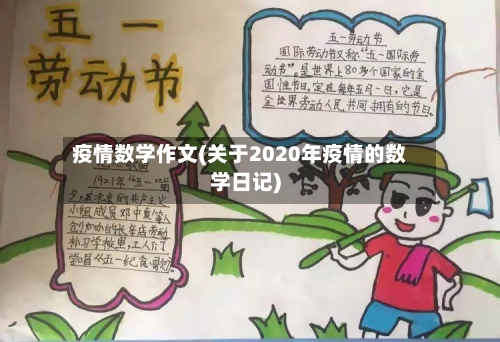 五一
劳动节
五一劳动节
国际劳动节又称“五一国际劳
动节”。是世界上80多个国家的全
国性节日。定在每年五月一日，它是
全世界劳动人民共同拥有的节日。
疫情数学作文(关于2020年疫情的数
学日记)
1921年“五一”前
夕，在北京的共产主义
小组成员邓中夏等，
创办的长辛店劳动
补习学校里，工人们
学唱《五一纪念歌》